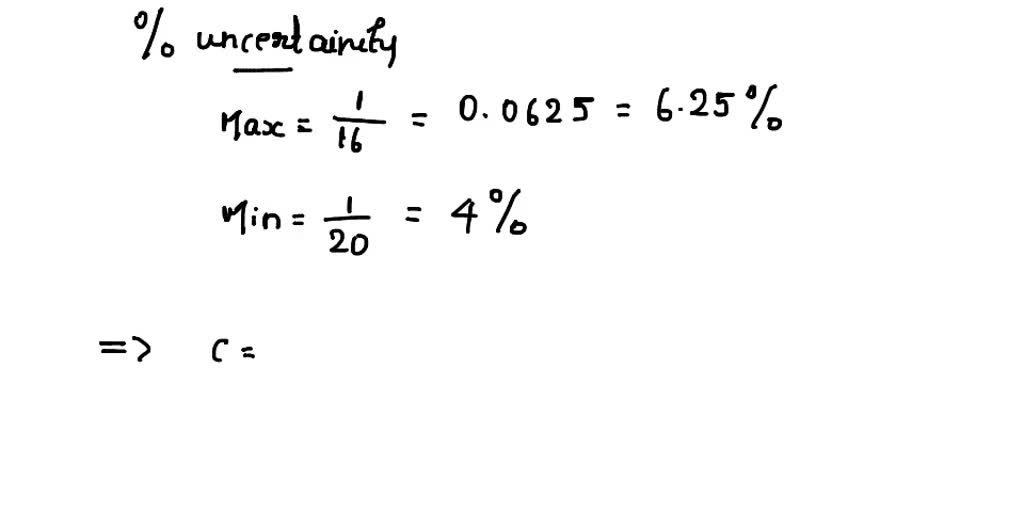 % uncertainity
Max = 1/16 = 0.0625 = 6.25%
Min = 1/20 = 4%
=> C =